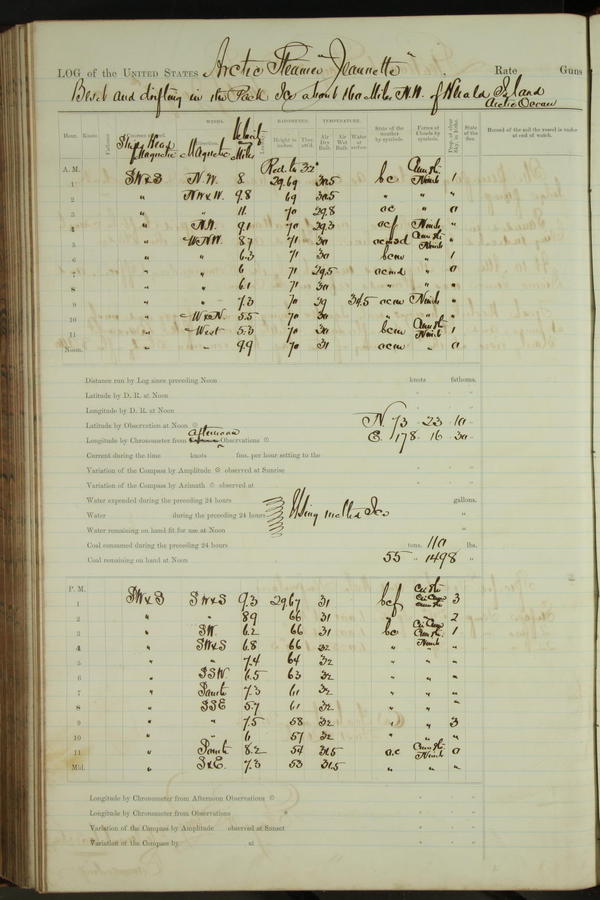 LOG of the UNITED STATES Arctic Steamer "Jeannette" Rate Guns
Beset and drifting in the Pack Ice about 160 Miles N.W. of Herald Island
Arctic Ocean
Hour. Knots. Ship's Head Magnetic WIND. Magnetic Velocity Miles BAROMETER. Height in inches. Ther. att'd. TEMPERATURE. Air Dry Bulb. Air Wet Bulb. Water at surface. State of the weather by symbols. Forms of Clouds by symbols. State of the Sea. Record of the sail the vessel is under at end of watch.
A. M. Red. to 32°
1 SW & S N.W. 8 29.69 30.5 bc Cum. Str. Nimb 1
2 " NW & W 9.8 69 30.5 " " "
3 " " 11. 70 29.8 oc " 0
4 " N.W. 9.1 70 29.3 ocf Nimb "
5 " WNW 8.7 71 30 Cum. Str. Nimb "
6 " " 6.3 71 30 bcm " 1
7 " " 6 71 29.5 " 0
8 " " 6.1 71 30 " " "
9 " " 7.3 70 29 ocm Nimb "
10 " W & N. 5.5 70 30 " " "
11 " West 5.3 70 30 bcm Cum. Str. Nimb 1
Noon. " " 9.9 70 31 ocm " 0
Distance run by Log since preceding Noon knots fathoms.
Latitude by D. R. at Noon
Longitude by D. R. at Noon
Latitude by Observation at Noon N. 73 23 10
Longitude by Chronometer from afternoon Observations E. 178 16 30
Current during the time knots fms. per hour setting to the
Variation of the Compass by Amplitude observed at Sunrise
Variation of the Compass by Azimuth observed at
Water expended during the preceding 24 hours gallons.
Water during the preceding 24 hours Using melted Ice "
Water remaining on hand fit for use at Noon "
Coal consumed during the preceding 24 hours tons. 110 lbs.
Coal remaining on hand at Noon 55 " 1498 "
P. M.
1 SW & S SW & S 9.3 29.67 31 bcf 3
2 " " 8.9 66 31 " 2
3 " SW. 6.2 66 31 bc 1
4 " SW & S 6.8 66 32 " "
5 " " 7.4 64 32 " " "
6 " SSW. 6.5 63 32 " " "
7 " South 7.3 61 32 " " "
8 " SSE 5.7 61 32 " " "
9 " " 7.5 58 32 " " 3
10 " " 6 57 32 " " "
11 " South 8.2 54 31.5 oc Cum. Str. Nimb 0
Mid. " S & E. 7.3 53 31.5 " " "
Longitude by Chronometer from Afternoon Observations
Longitude by Chronometer from Observations
Variation of the Compass by Amplitude observed at Sunset
Variation of the Compass by at